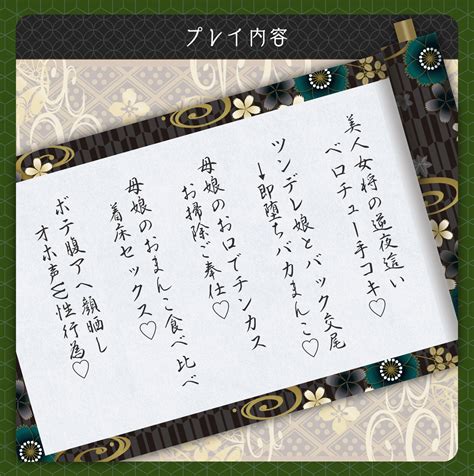 プレイ内容
美人女将の逆夜這い
ベロチュー手コキ♡
ツンデレ娘とバック交尾
→即堕ちバカまんこ♡
母娘のお口でチンカス
お掃除ご奉仕♡
母娘のおまんこ食べ比べ
着床セックス♡
ボテ腹アヘ顔晒し
オホ声W性行為♡